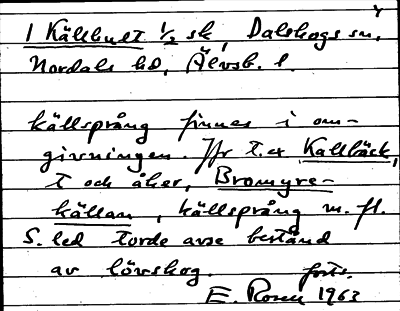 1 Källhult 1/2 sk, Dalskogs sn,
Nordals hd, Älvsb. l.
källsprång finnes i om-
givningen. Jfr t.ex Kallbäck,
t och åker, Bromyre-
källan, källsprång m. fl.
S. led torde avse bestånd
av lövskog. forts.
E. Rosen 1963